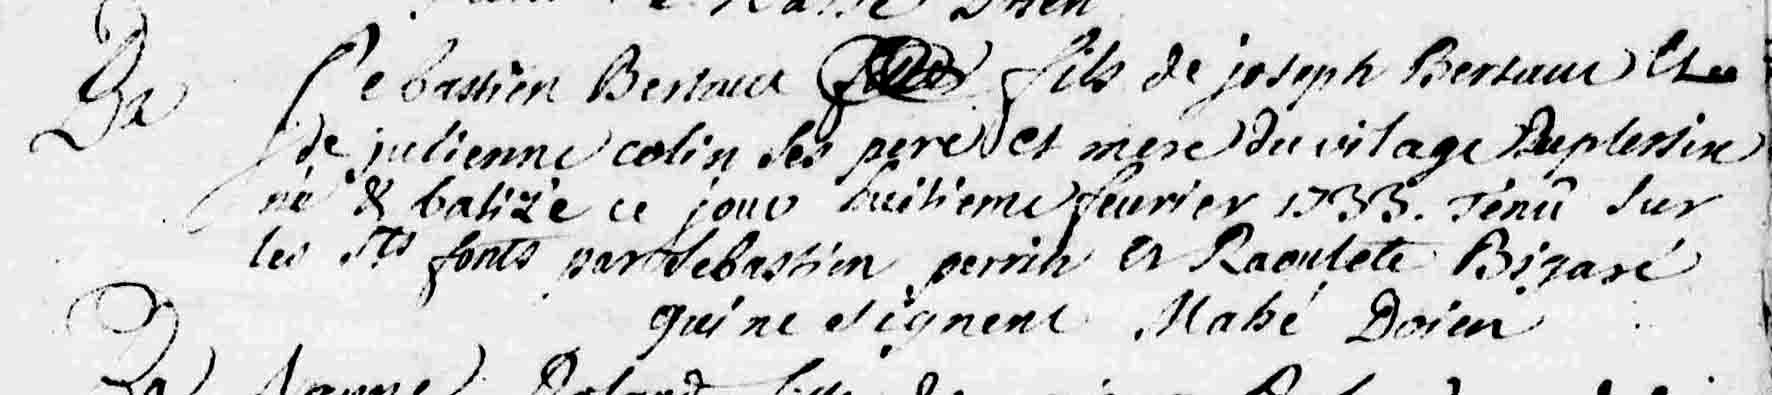 Doien
Ba Sebastien Bertaux fils de joseph Bertaux Et
de julienne colin ses pere et mere du vilage Duplessix
né & batizé ce jour huitieme feurier 1733. Tenû sur
les Sts fonts par Sebastien perrin et Raoulete Bizaré
qui ne signent Mahé Doien
Ba